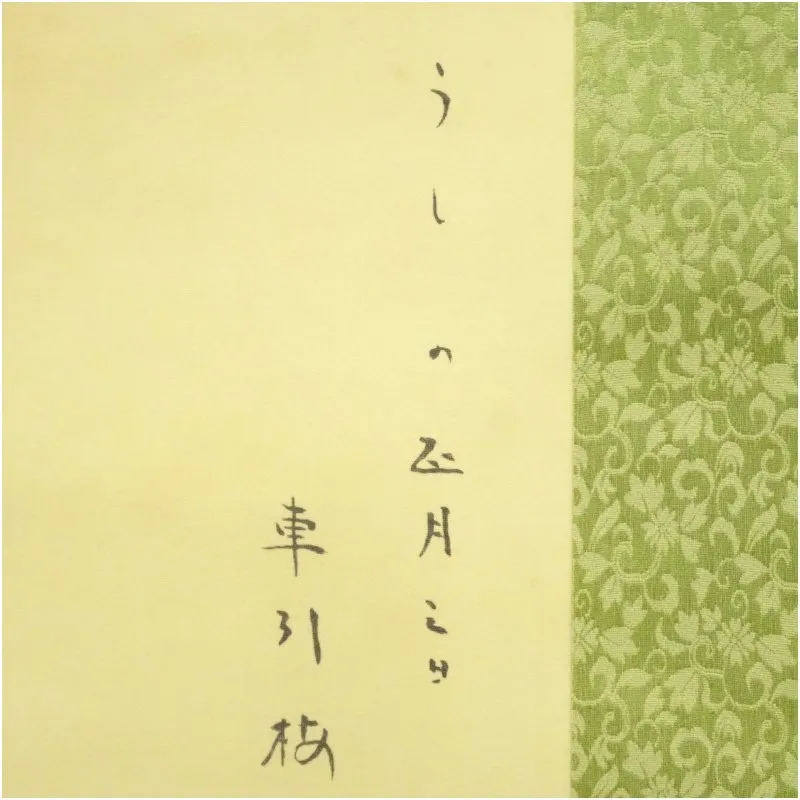 うしの正月三日
車引梅